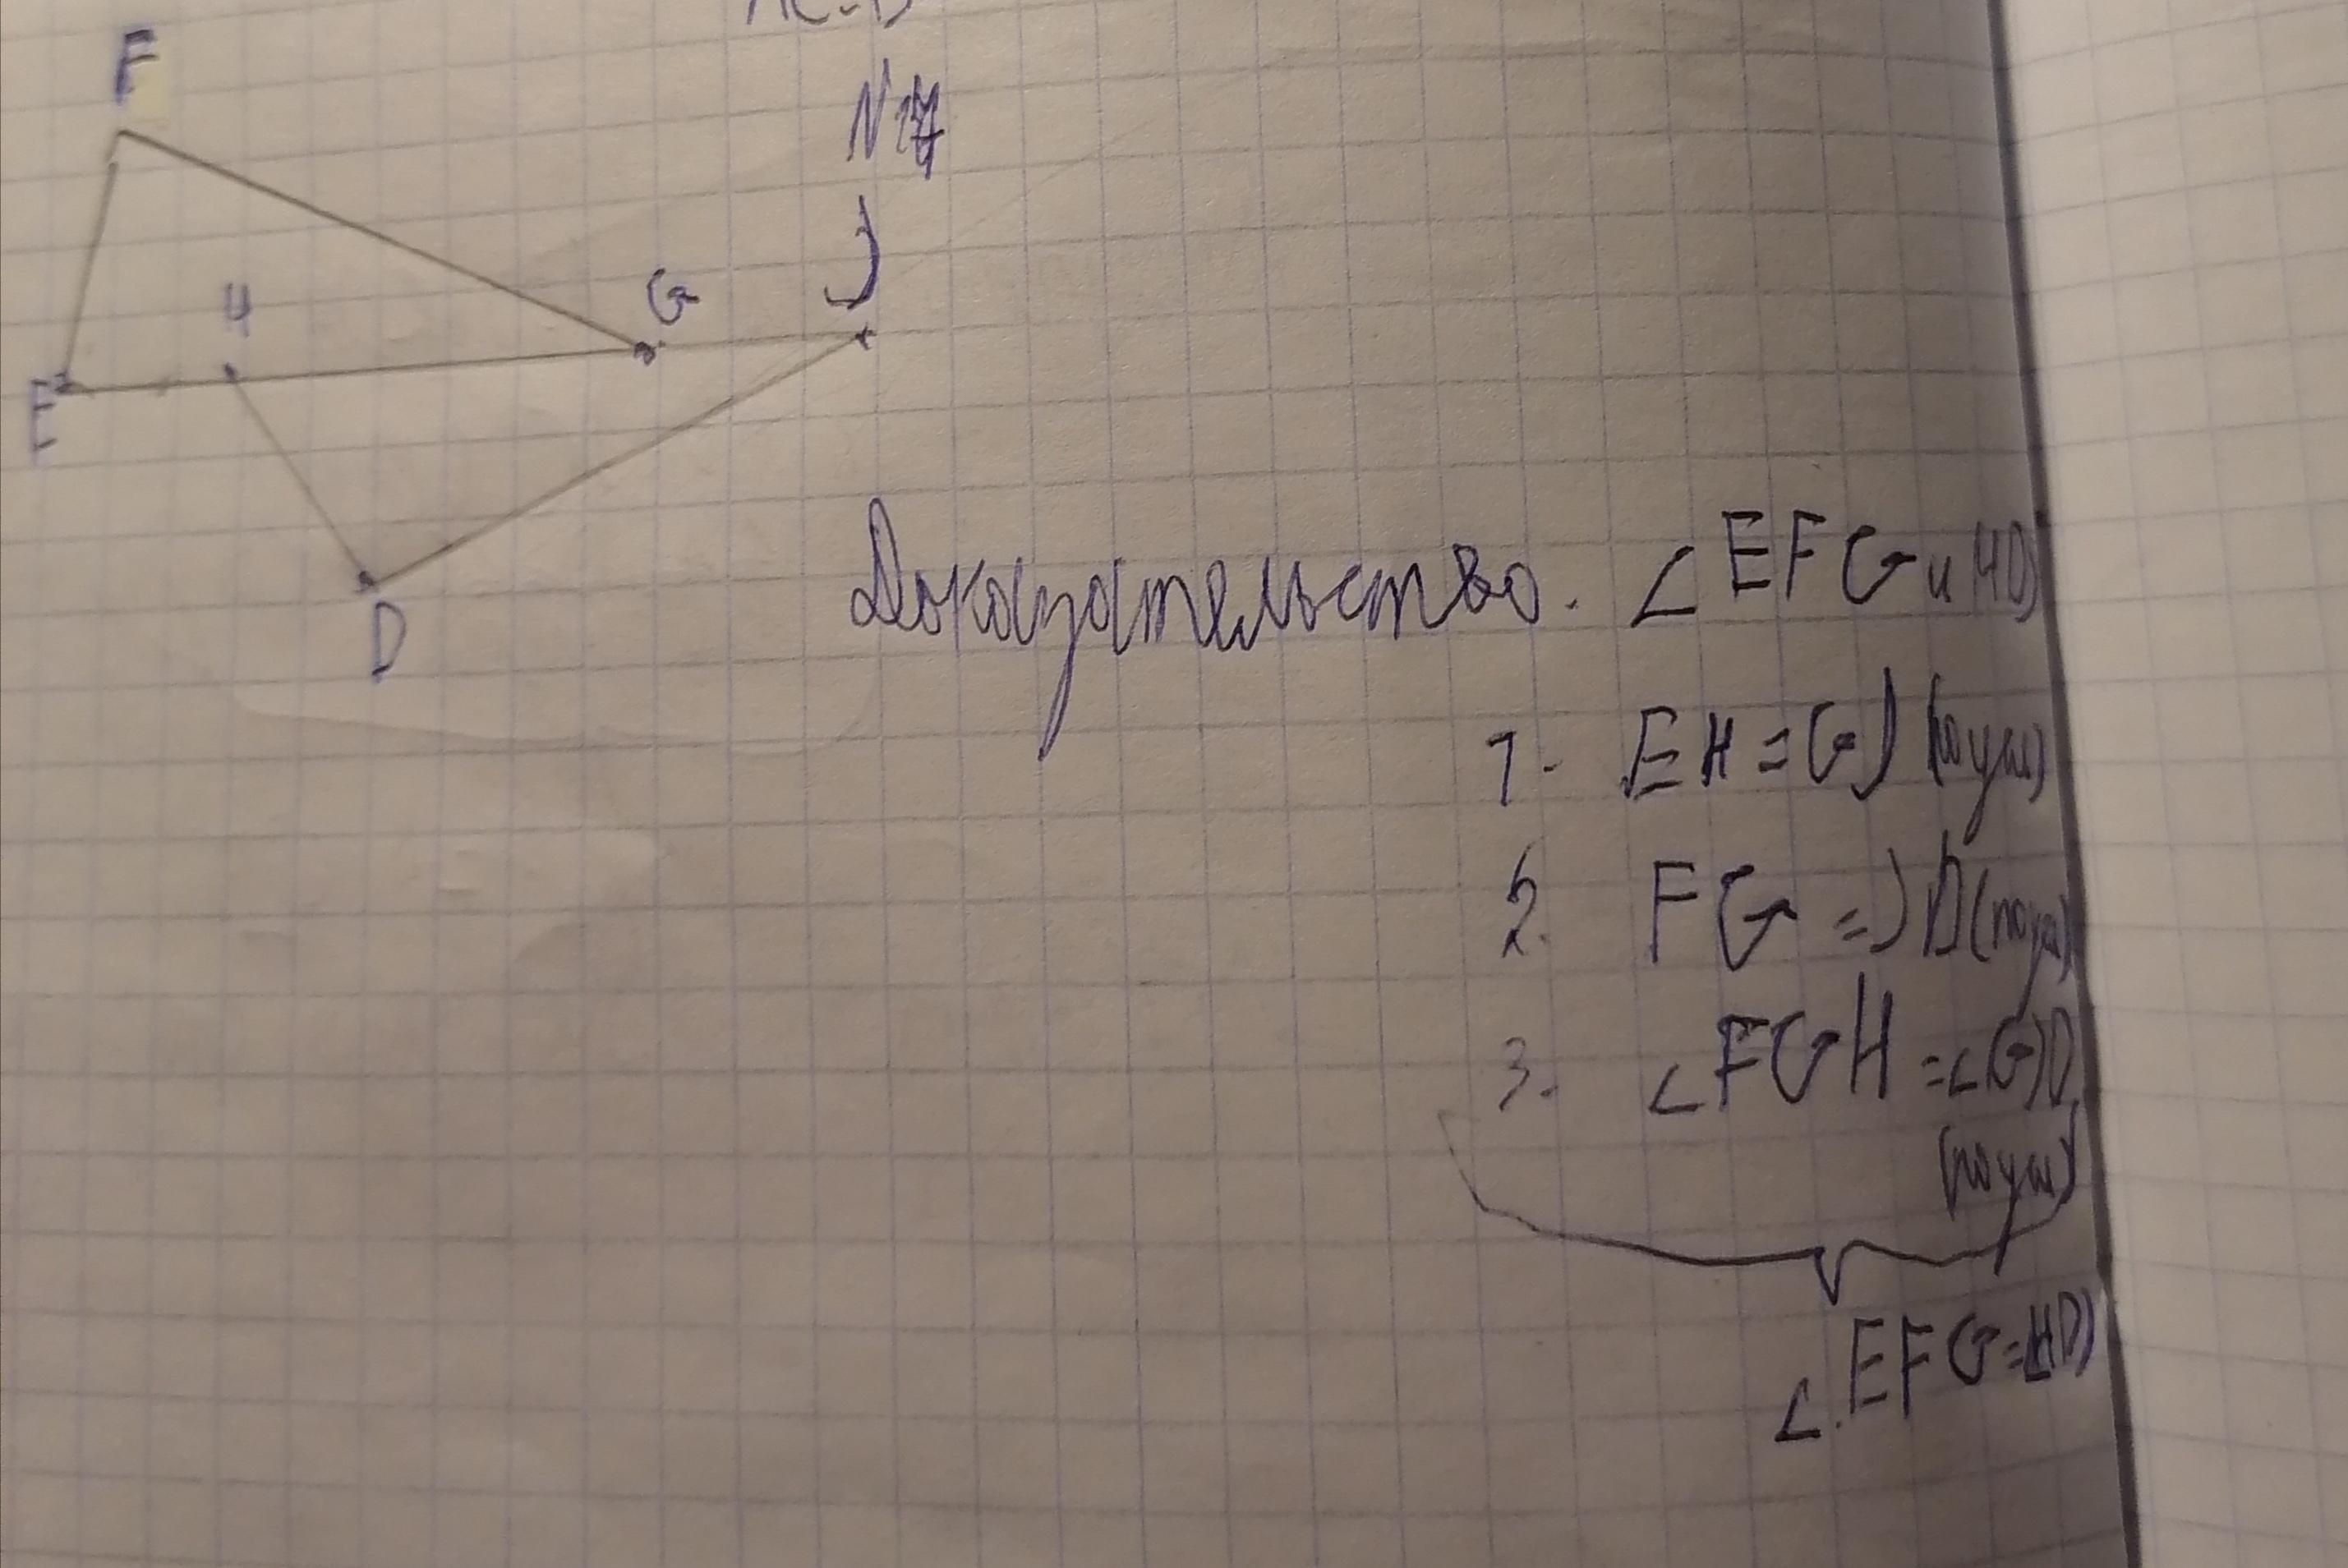 F
J
G
H
E
D
Доказательство. ∠ EFG и HDJ
1. EH = GJ (по усл)
2. FG = JD (по усл)
3. ∠FGH = ∠GJD
(по усл)
∠.EFG=∠HDJ